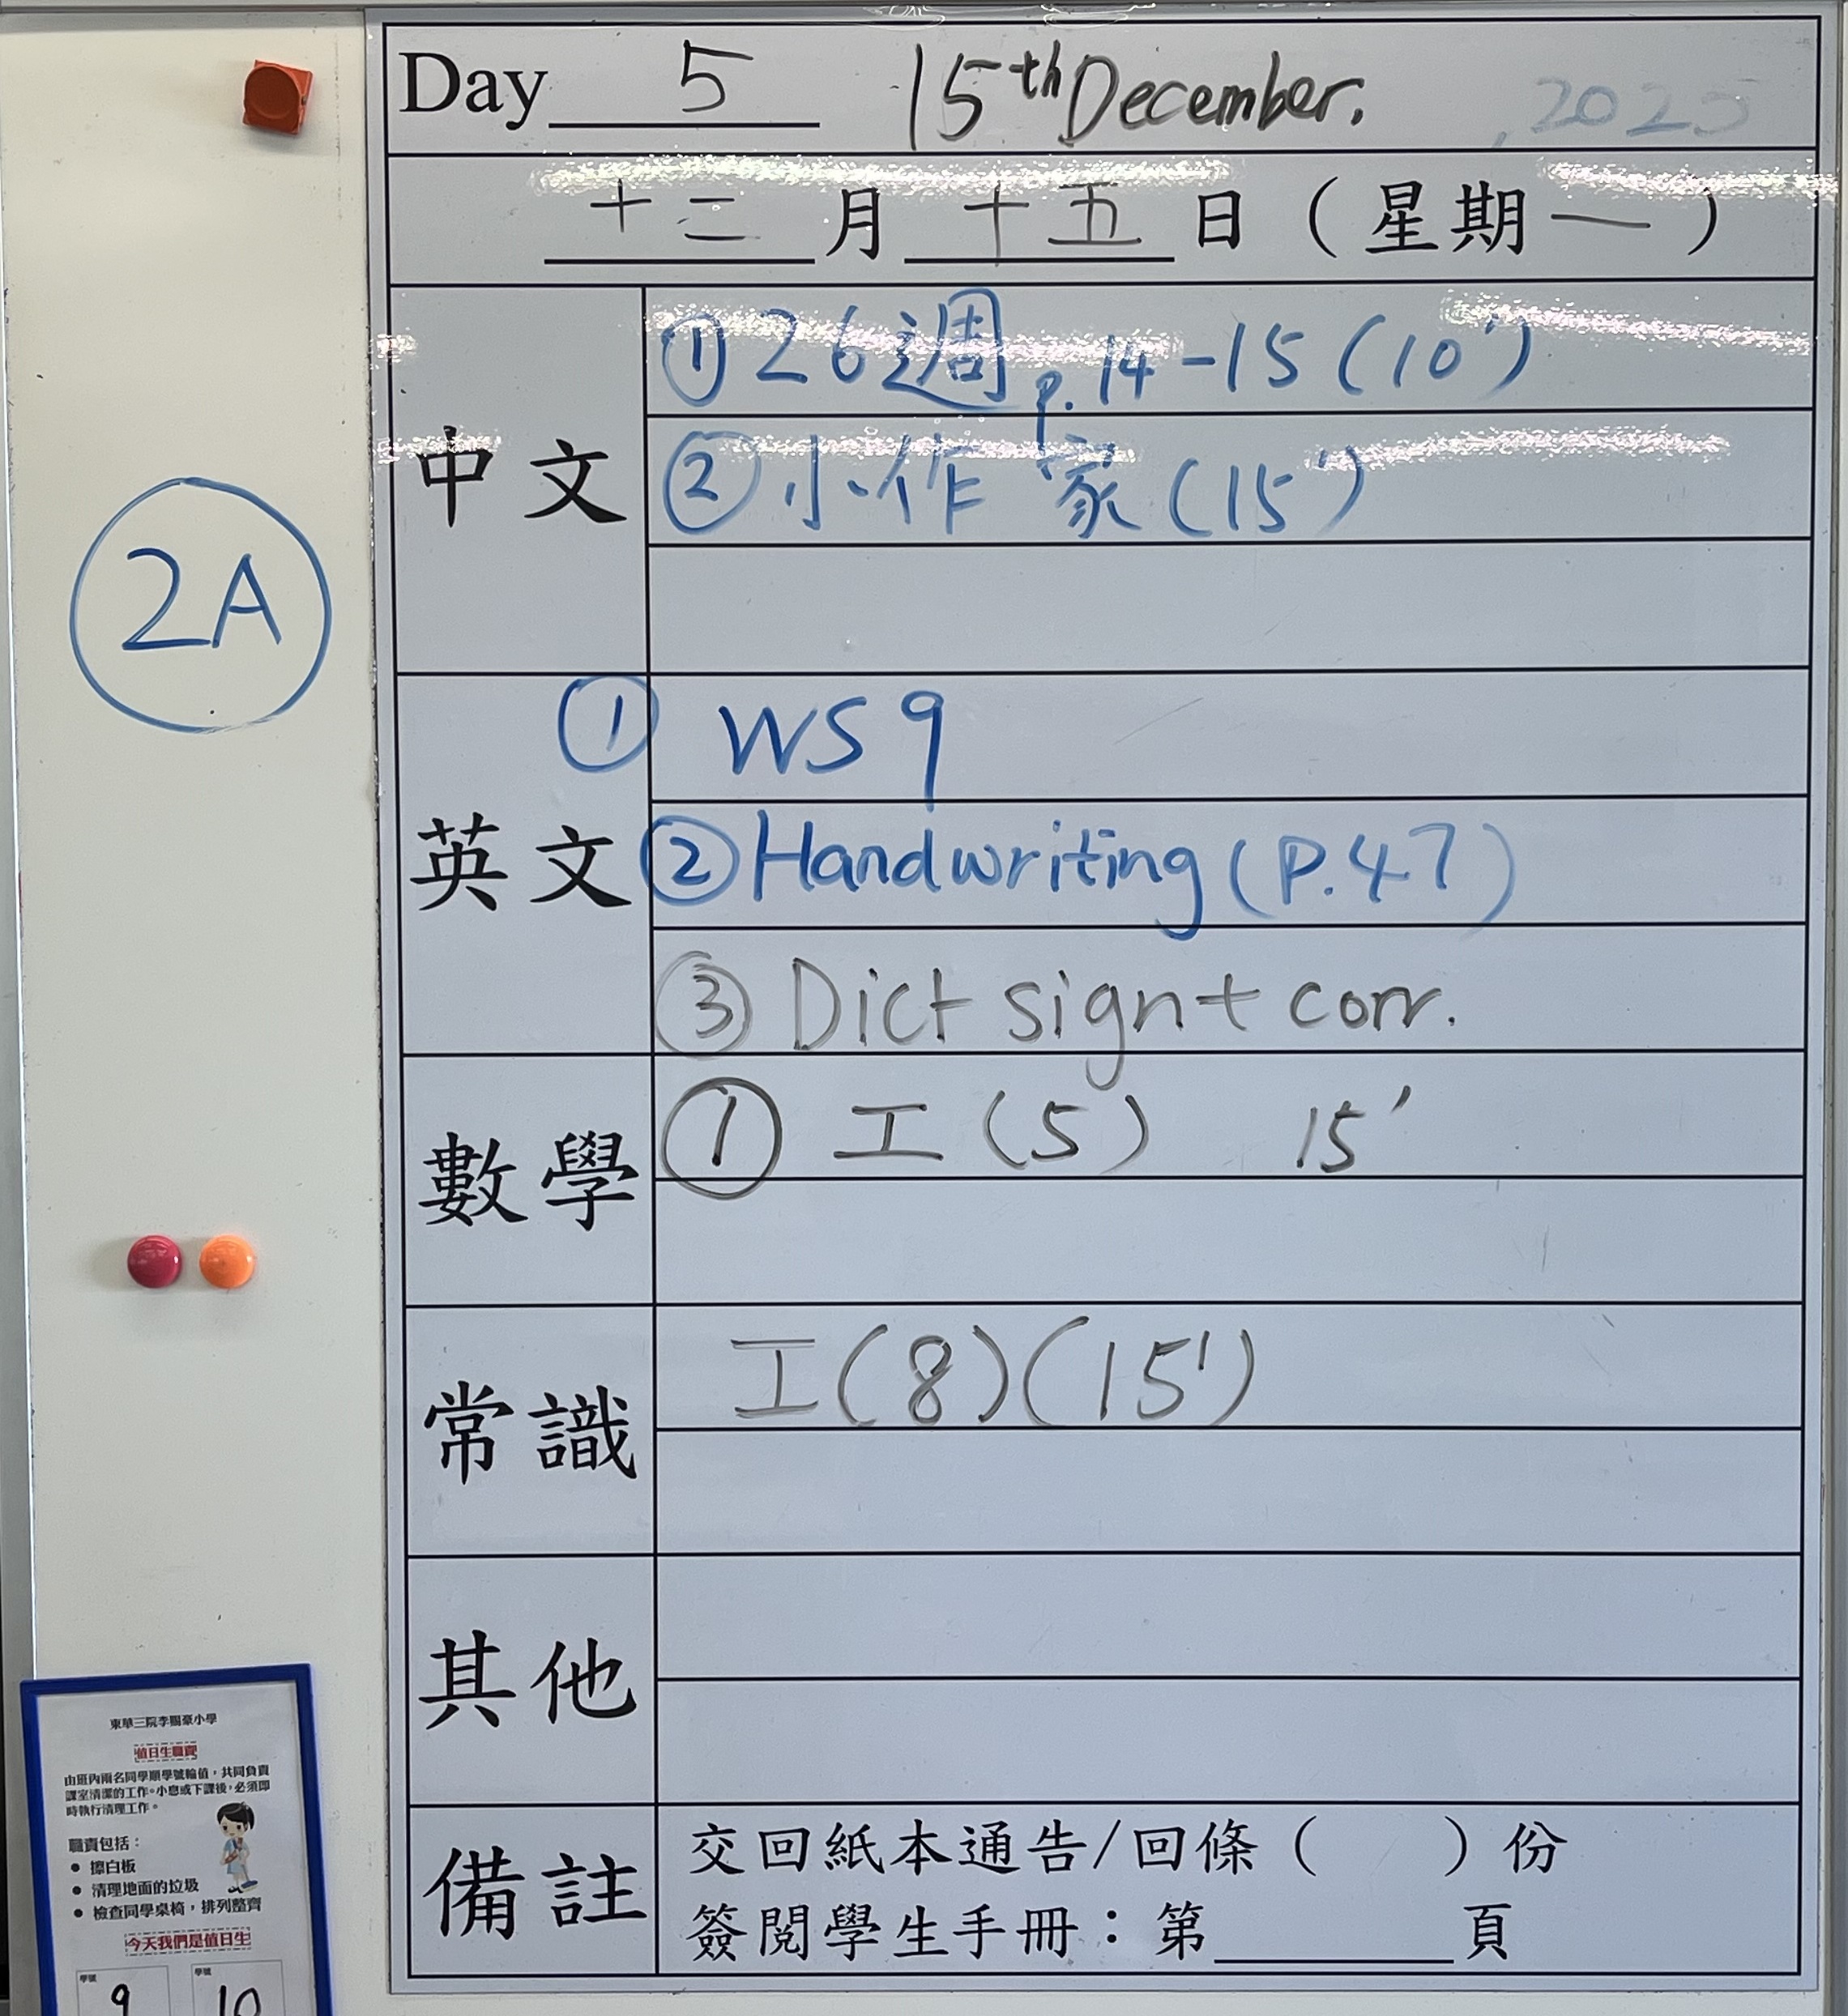 Day 5 15th December. , 2025
十二月十五日（星期一）
中文
① 26週 p.14-15 (10')
② 小作家 (15')
2A
英文
① WS 9
② Handwriting (P.47)
③ Dict sign + corr.
數學
① 工(5) 15'
常識
工(8)(15')
其他
備註
交回紙本通告/回條（ ）份
簽閱學生手冊：第____頁
東華三院李賜豪小學
值日生職責
由班內兩名同學順學號輪值，共同負責
課室清潔的工作。小息或下課後，必須即
時執行清理工作。
職責包括：
● 擦白板
● 清理地面的垃圾
● 檢查同學桌椅，排列整齊
今天我們是值日生
學號 學號
9 10